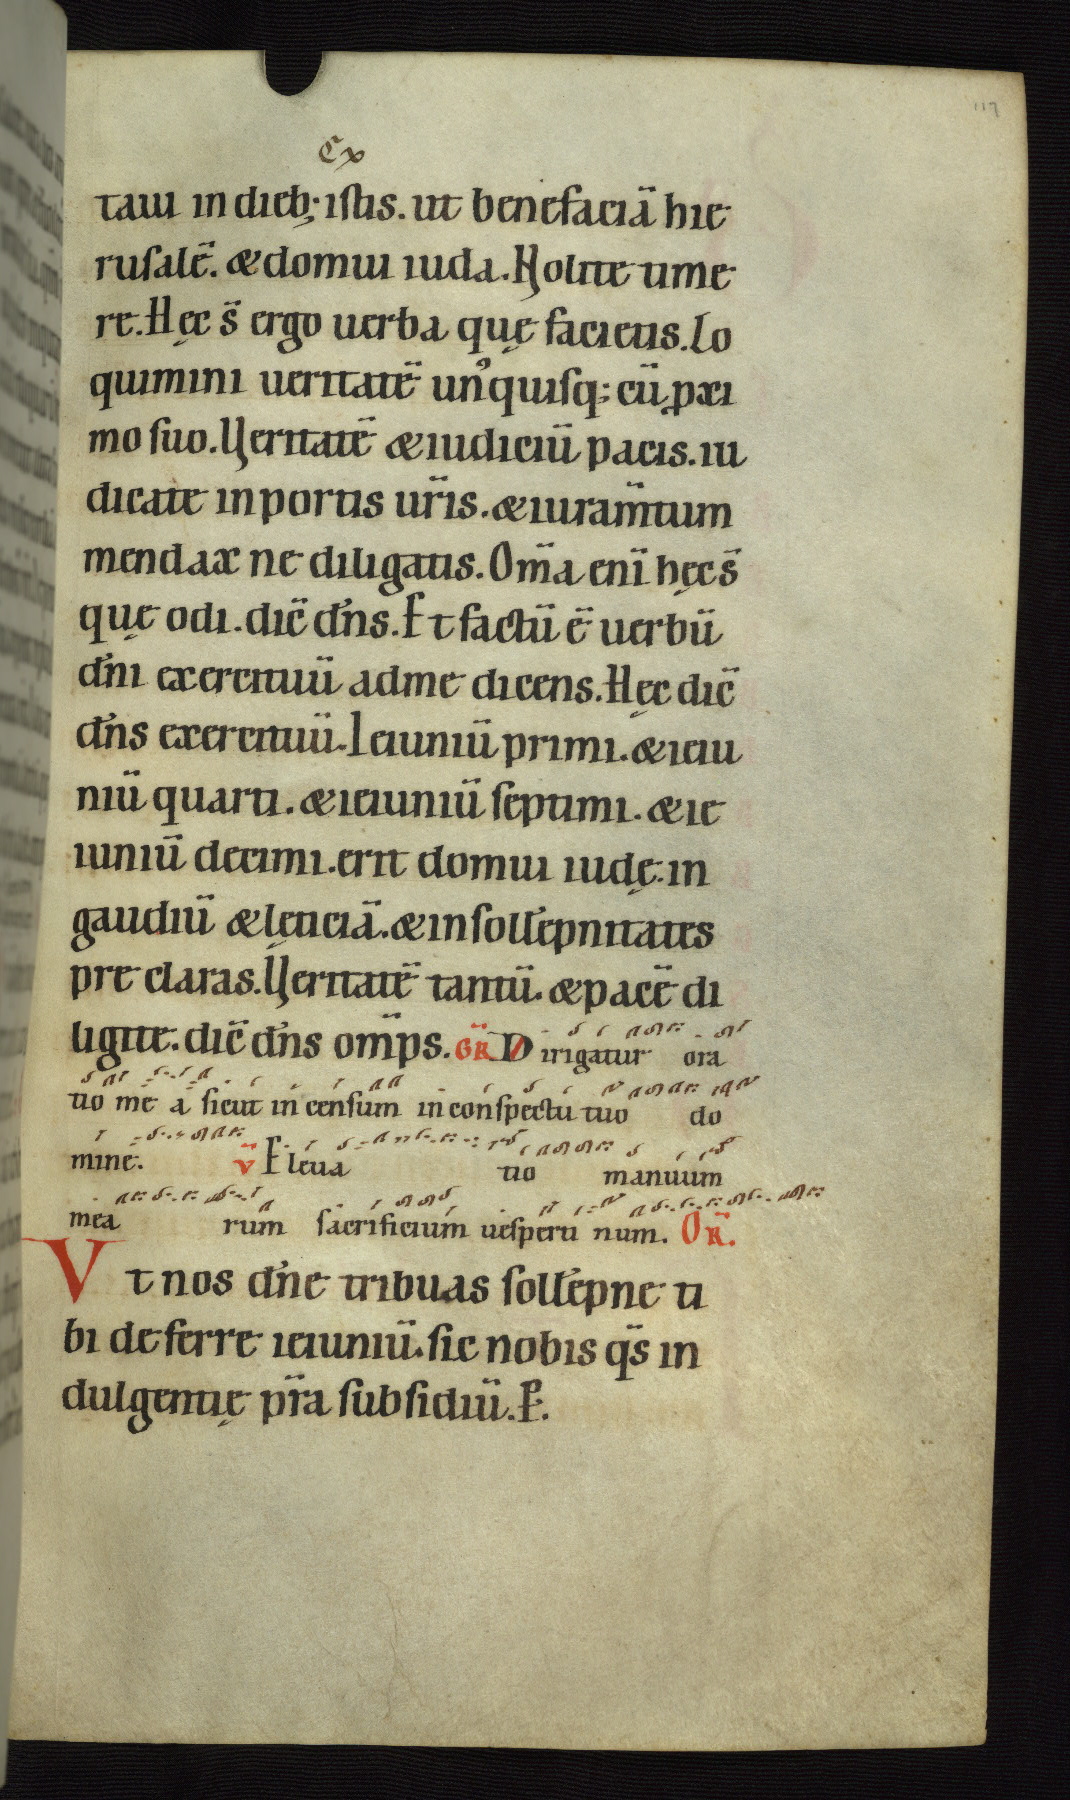 117
Cx
taui in dieb; istis. ut benefaciā hie
rusalē. & domui iuda. Nolite time
re. Hęc s̄ ergo uerba quę facietis. Lo
quimini ueritatē un᾽quisq; cū ꝓxi
mo suo. Ueritatē & iudiciū pacis. iu
dicate in portis ur̄is. & iuram̄tum
mendax ne diligatis. Om̄a eni᷑ hęc s̄
quę odi. dic̄ dn̄s. Et factū ē uerbū
dn̄i exercituū ad me dicens. Hęc dic̄
dn̄s exercituū. Ieiuniū primi. & ieiu
niū quarti. & ieiuniū septimi. & ie
iuniū decimi. erit domui iudę. in
gaudiū & lęticiā. & in sollēpnitates
pre claras. Ueritatē tantū. & pacē di
ligite. dic̄ dn̄s om̄ps. GR̄ Dirigatur ora
tio mea sicut incensum in conspectu tuo do
mine. v̄ Eleua tio manuum
mea rum sacrificium uesperti num. OR̄.
Vt nos dn̄e tribuas sollēpne ti
bi deferre ieiuniū. sic nobis qs̄ in
dulgentię pr̄a subsidiū. P.